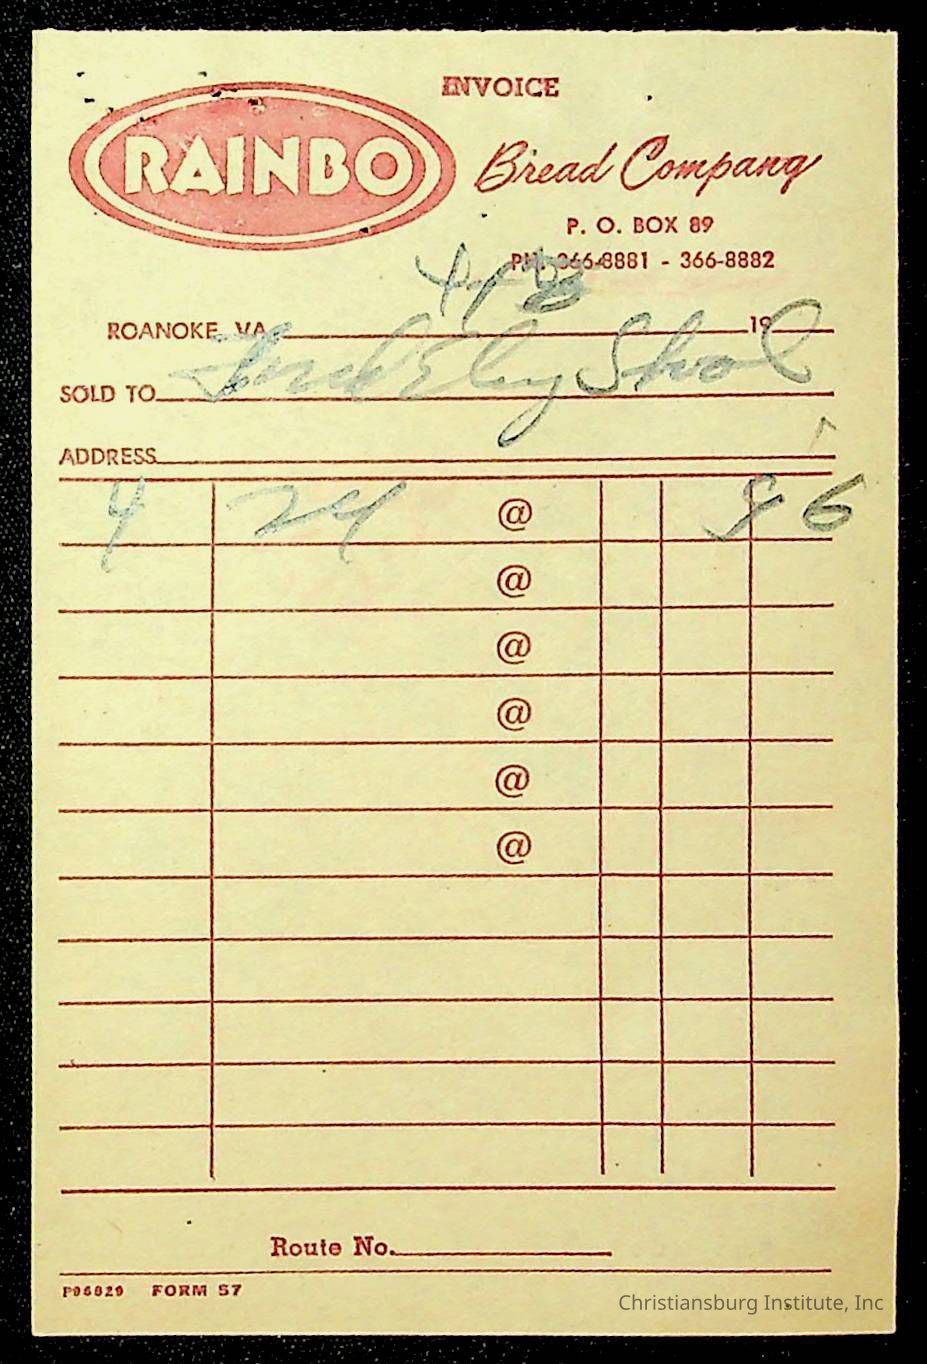 INVOICE
RAINBO
Bread Company
P. O. BOX 89
PH. 366-8881 - 366-8882
ROANOKE, VA. 19
SOLD TO
ADDRESS
4 24 @ 96
@
@
@
@
@
Route No.
P06829 FORM S7
Christiansburg Institute, Inc